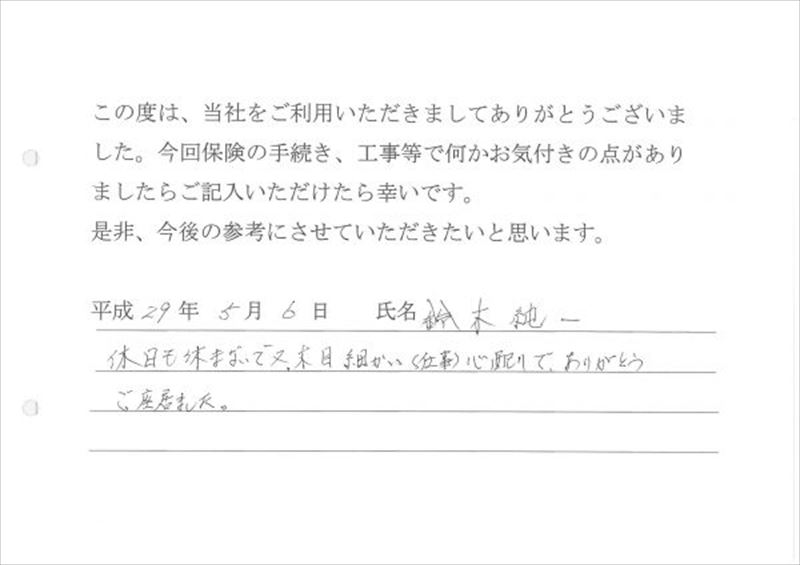 この度は、当社をご利用いただきましてありがとうございま
した。今回保険の手続き、工事等で何かお気付きの点があり
ましたらご記入いただけたら幸いです。
是非、今後の参考にさせていただきたいと思います。
平成 29 年 5 月 6 日 氏名 鈴木 純一
休日も休まないで又、木目細かい(仕事)心配りで、ありがとう
ご座居ました。